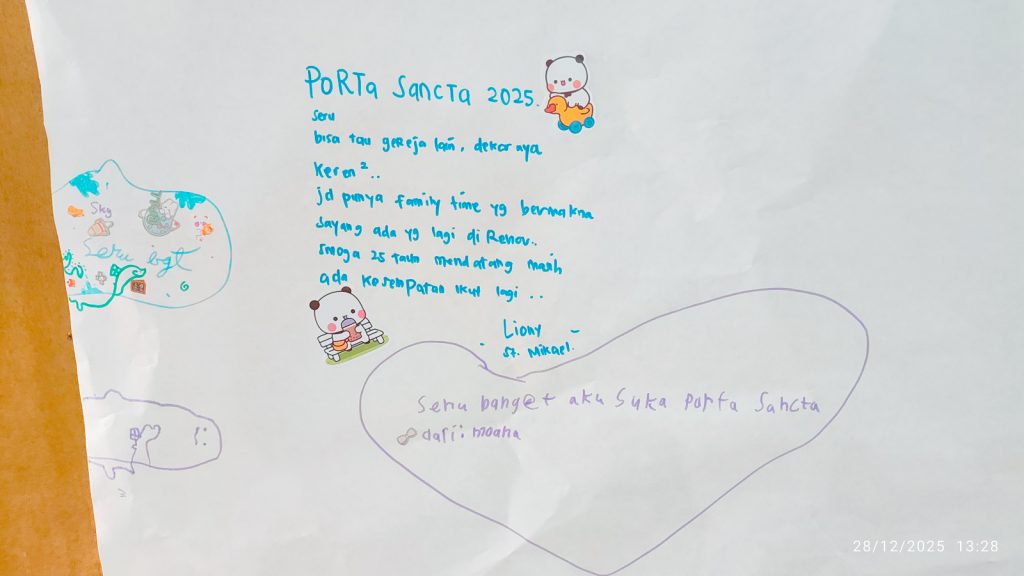 PORTA SANCTA 2025.
seru
bisa tau gereja lain, dekor nya
keren²..
jd punya family time yg bermakna
sayang ada yg lagi di Renov..
smoga 25 taun mendatang masih
ada kesempatan ikut lagi ..
Liony -
St. Mikael.
Sky
Seru bgt
Seru banget aku Suka Porta Sancta
dari: moana
28/12/2025 13:28